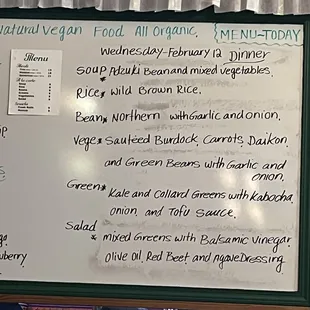 Natural Vegan Food All Organic. MENU-TODAY
Wednesday-February 12 Dinner
Menu
Soup * Adzuki Bean and mixed vegetables.
Rice * Wild Brown Rice.
Bean * Northern with Garlic and onion.
Vege * Sauteed Burdock, Carrots, Daikon
and Green Beans with Garlic and
onion.
Green * Kale and Collard Greens with Kabocha,
onion and Tofu Sauce.
Salad
* mixed Greens with Balsamic Vinegar
olive oil, Red Beet and Agave Dressing.